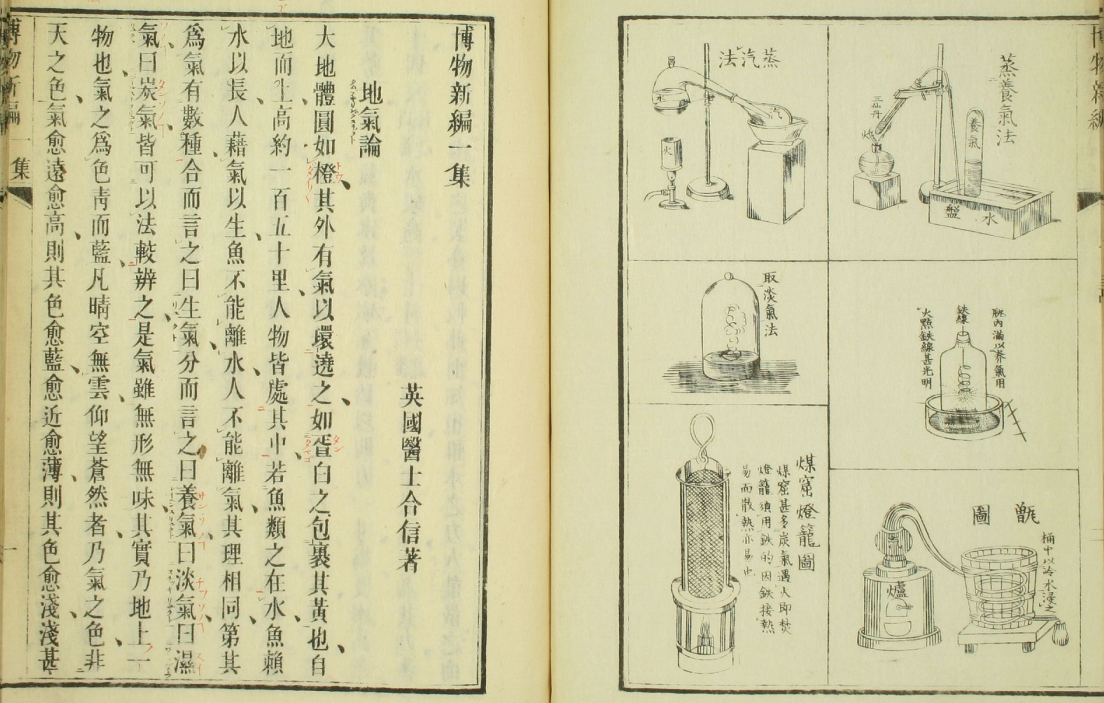 博物新編
蒸養氣法
養氣
三仙丹
炉
水
盤
蒸汽法
汽
水
火
瓶內滿以养氣用
鉄線
火㸃鉄線甚光明
取淡氣法
甑圖
桶中以冷水浸之
爐
煤窰燈籠圖
煤窰甚多炭氣遇火即焚
燈籠須用鉄的因鉄接熱
易而散熱亦易也
博物新編一集
地氣論
英國醫士合信著
大地體圓如橙其外有氣以環遶之如疍白之包裹其黃也自
地而上高約一百五十里人物皆處其中若魚類之在水魚賴
水以長人藉氣以生魚不能離水人不能離氣其理相同第其
爲氣有數種合而言之曰生氣分而言之曰養氣曰淡氣曰濕
氣曰炭氣皆可以法較辨之是氣雖無形無味其實乃地上一
物也氣之爲色靑而藍凡晴空無雲仰望蒼然者乃氣之色非
天之色氣愈遠愈高則其色愈藍愈近愈薄則其色愈淺淺甚
博物新編 一集